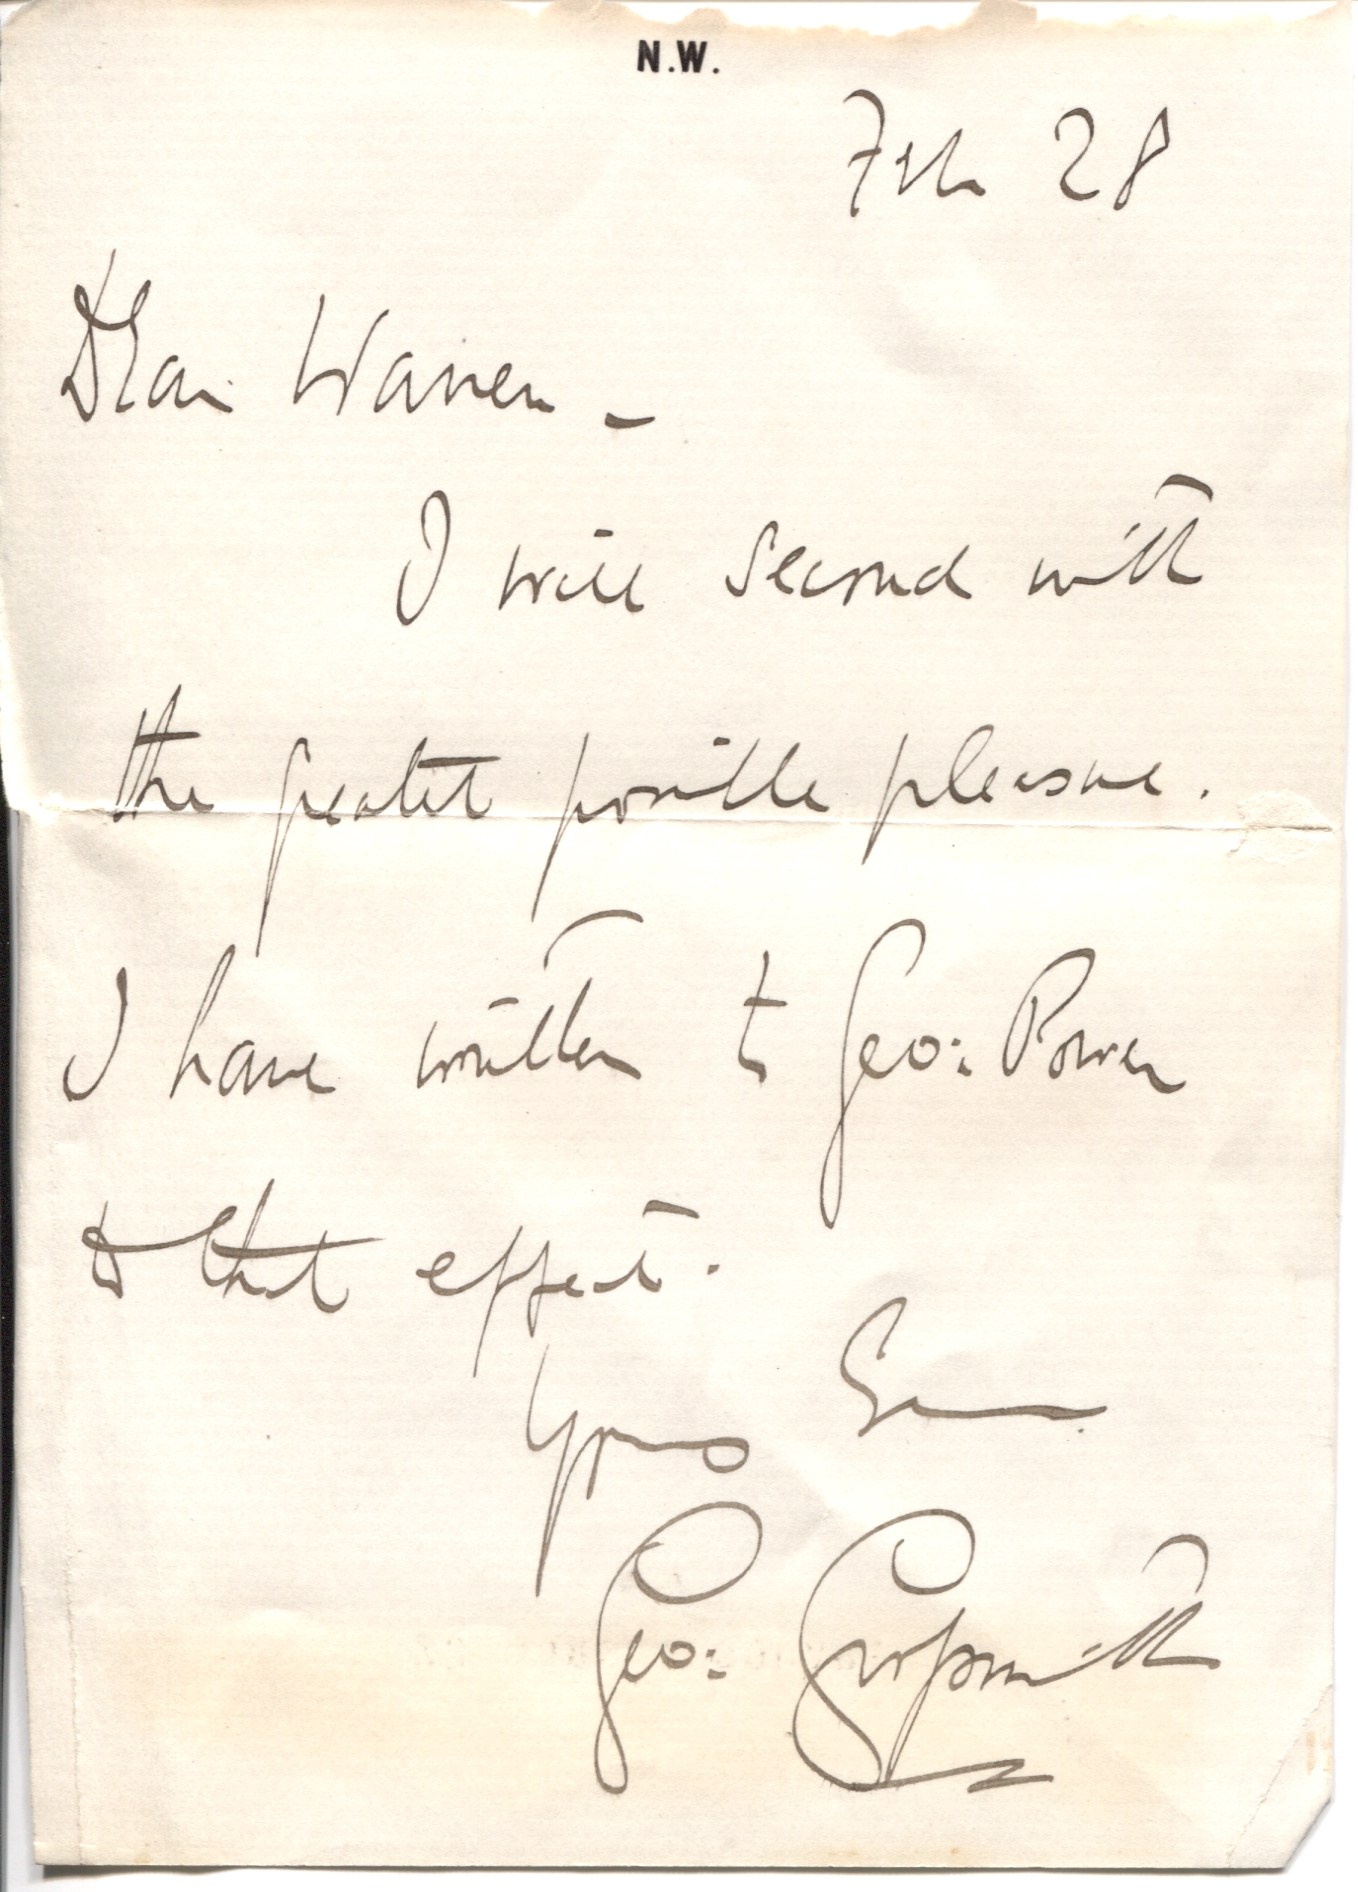 N.W.
Feb 28
Dear Warren –
I will second with
the greatest possible pleasure.
I have written to Geo: Power
to that effect.
Yours Sin
Geo: Grossmith